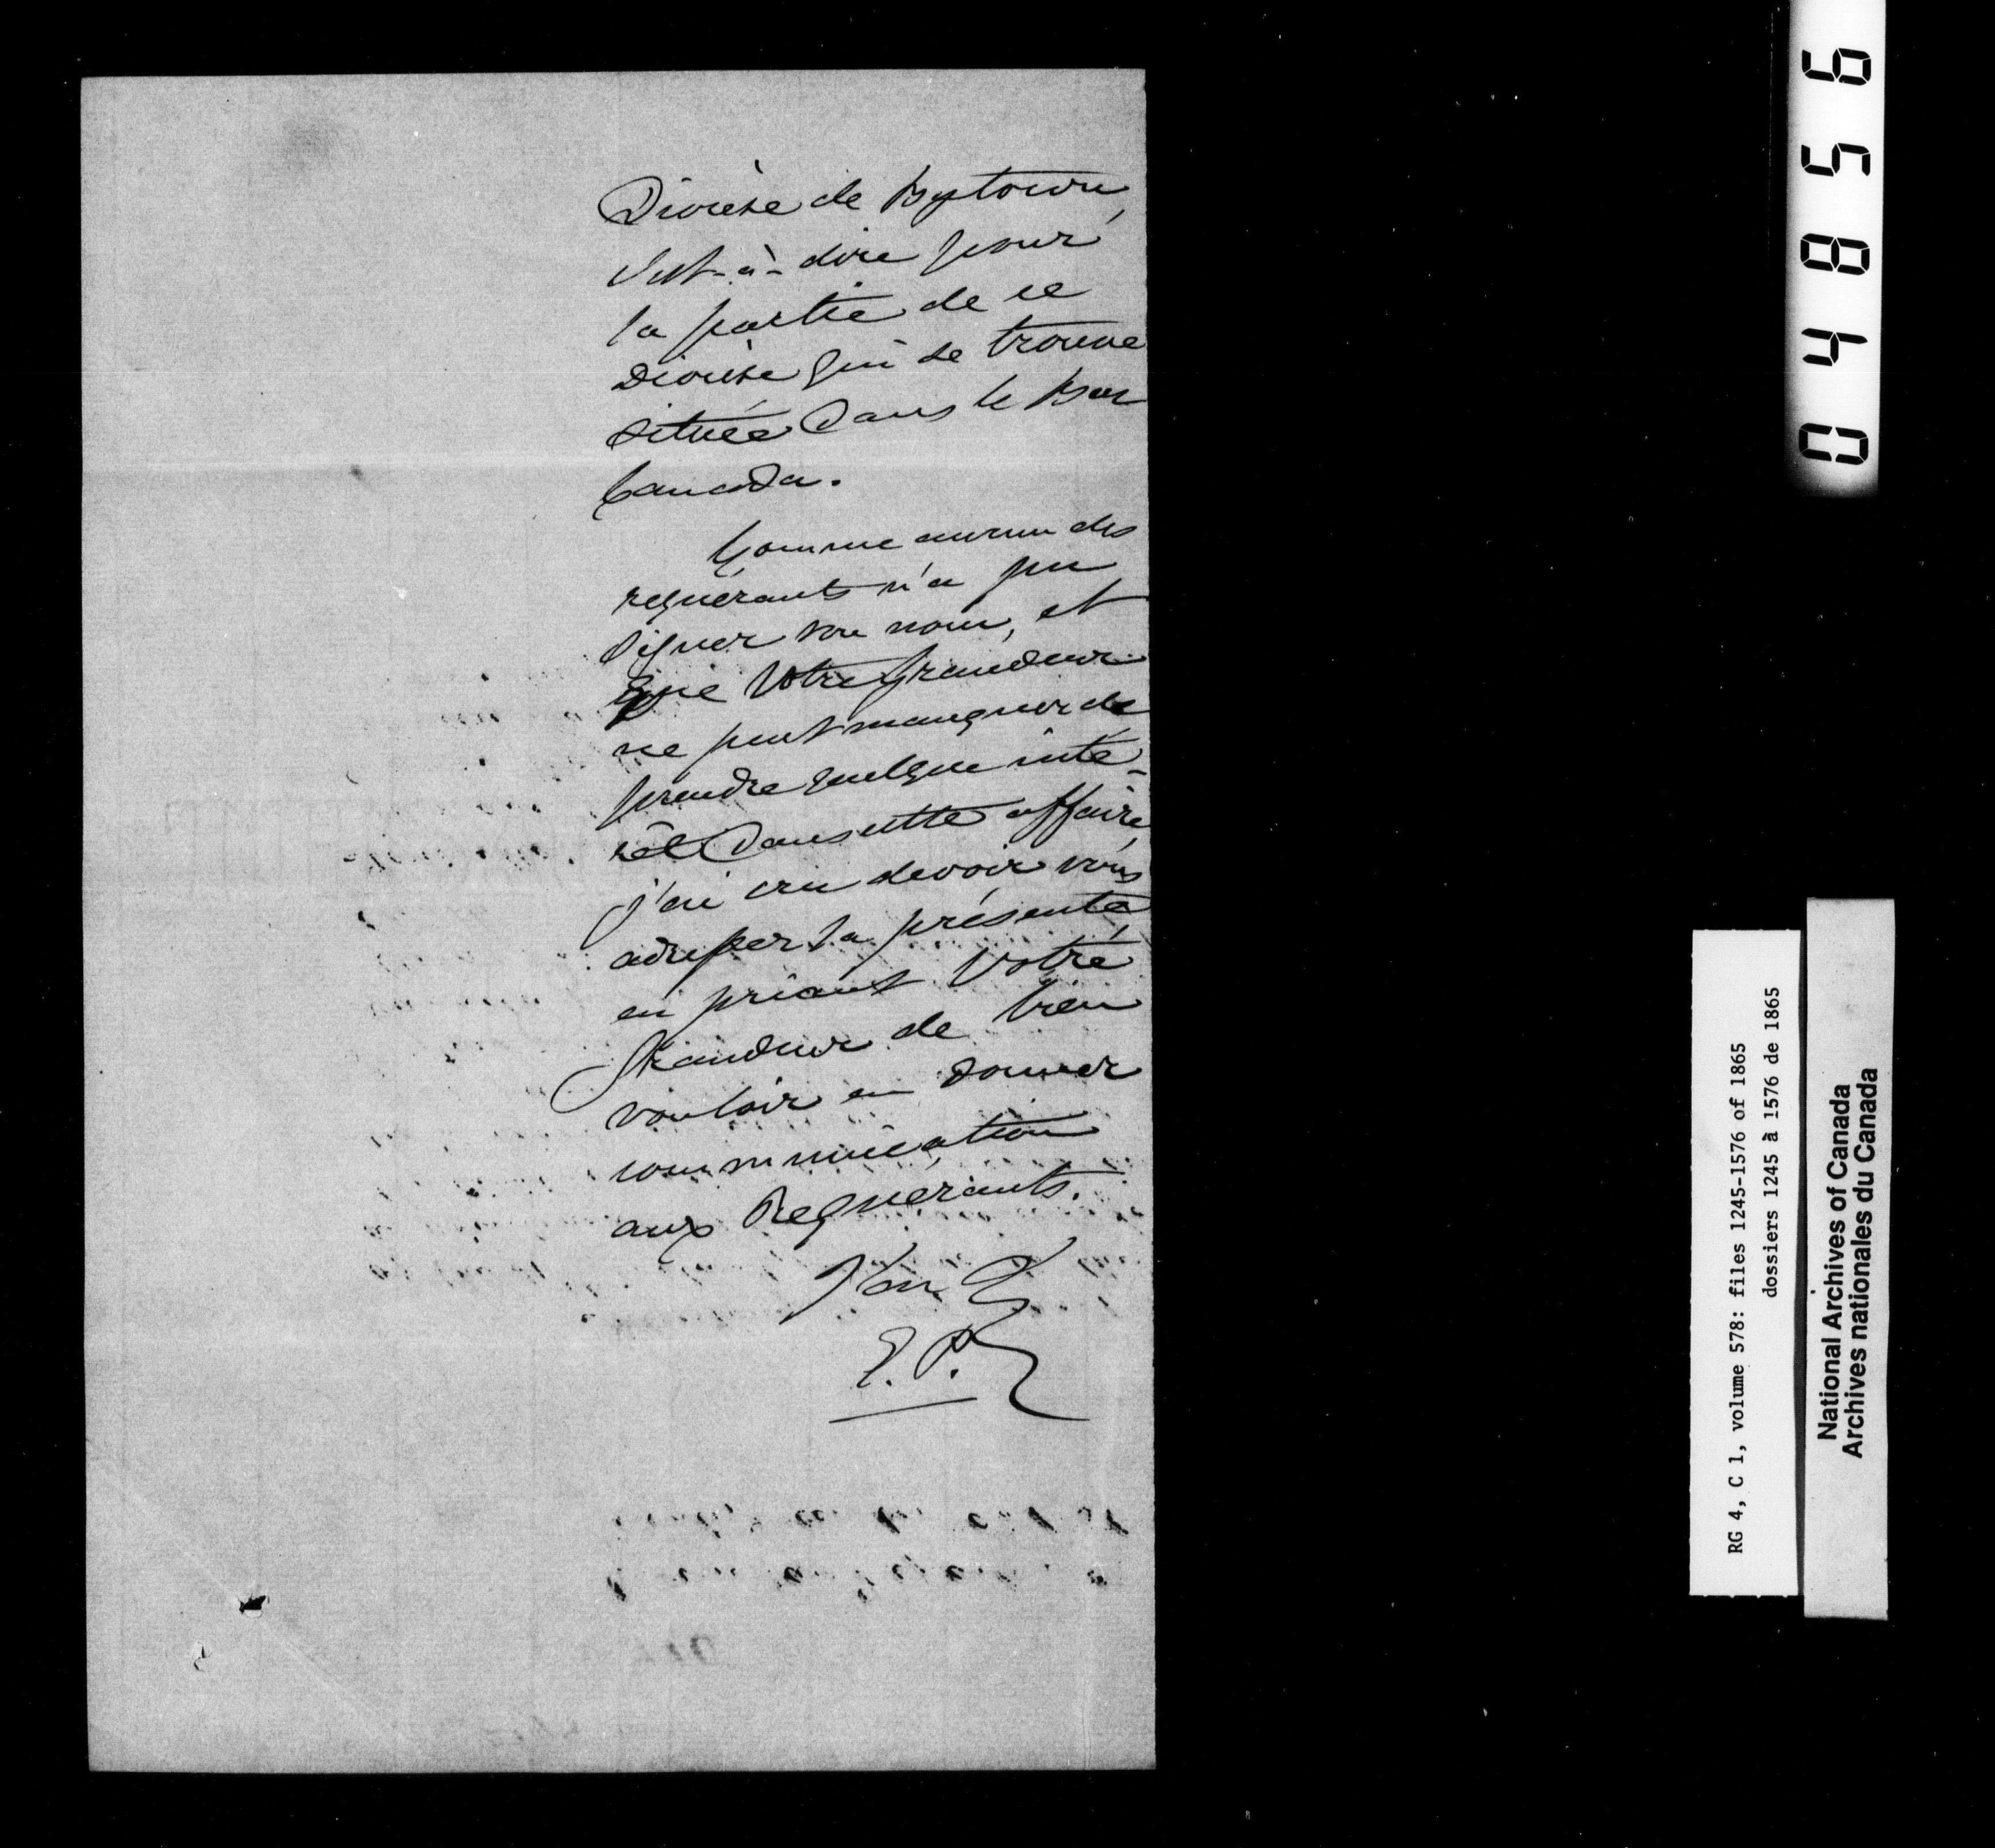 Diocèse de Bytown,
c'est-à-dire pour
la partie de ce
Diocèse qui se trouve
située dans le Bas
Canada.
Comme aucun des
requérants n'a pu
signer son nom, et
que Votre Grandeur
ne peut manquer de
prendre quelque inté-
rêt dans cette affaire,
j'ai cru devoir vous
adresser la présente,
en priant Votre
Grandeur de bien
vouloir en donner
communication
aux Requérants.
E. P.
04856
RG 4, C 1, volume 578: files 1245-1576 of 1865
dossiers 1245 à 1576 de 1865
National Archives of Canada
Archives nationales du Canada